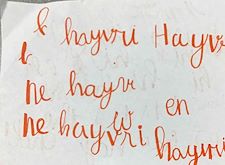 hayvri Hayv
ne hayv
en
ne hayvri hayvri